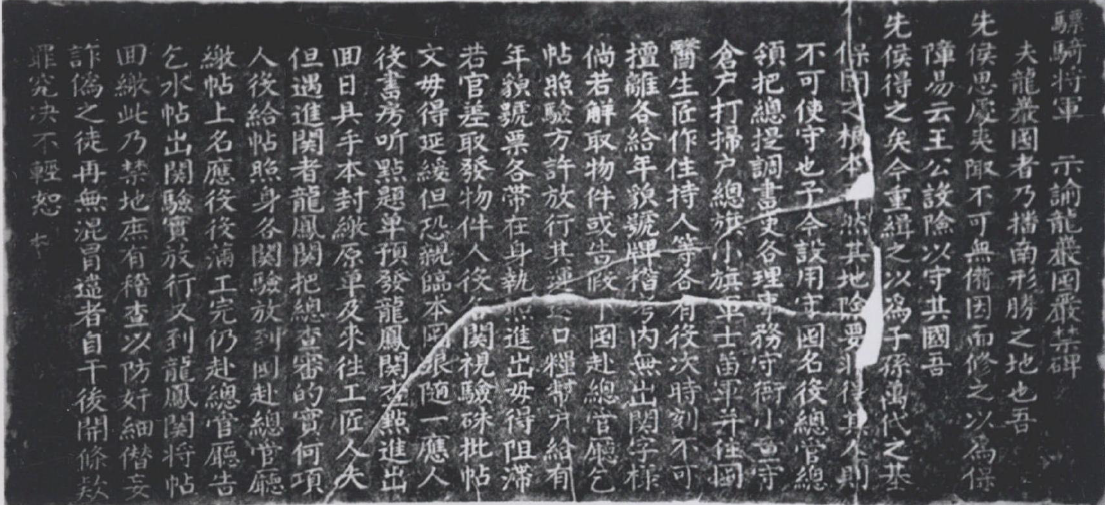 驃騎將軍 示諭龍巖囤嚴禁碑
夫龍巖囤者乃播南形勝之地也吾
先侯思慮夷陬不可無備因而修之以為保
障易云王公設險以守其國吾
先侯得之矣今重緝之以為子孫萬代之基
保固之根本 然其地險要 將後其人則
不可使守也予今設用守囤名後總官總
領把總提調書吏各理事務守衙小 守
倉户打掃户總旗小旗軍士苗軍并住囤
醫生匠作住持人等各有役次時刻不可
擅離各給年貌號牌稽考內無出関字樣
倘若解取物件或告假下囤赴總官廳乞
帖照驗方許放行其 口糧幣 給有
年貌號票各帶在身執照進出毋得阻滯
若官差取發物件人役 関視驗硃批帖
文毋得延緩但恐親臨本囤 隨一應人
後書房听點題單預發龍鳳関查點進出
囬日具手本封繳原單及來往工匠人夫
但遇進関者龍鳳関把總查審的實何項
人役給帖照身各関驗放到囤赴總官廳
繳帖上名應役後滿工完仍赴總官廳告
乞水帖出関驗實放行又到龍鳳関將帖
囬繳此乃禁地庶有稽查以防奸細僭妄
詐偽之徒再無混冒違者自干後開條款
罪究決不輕恕